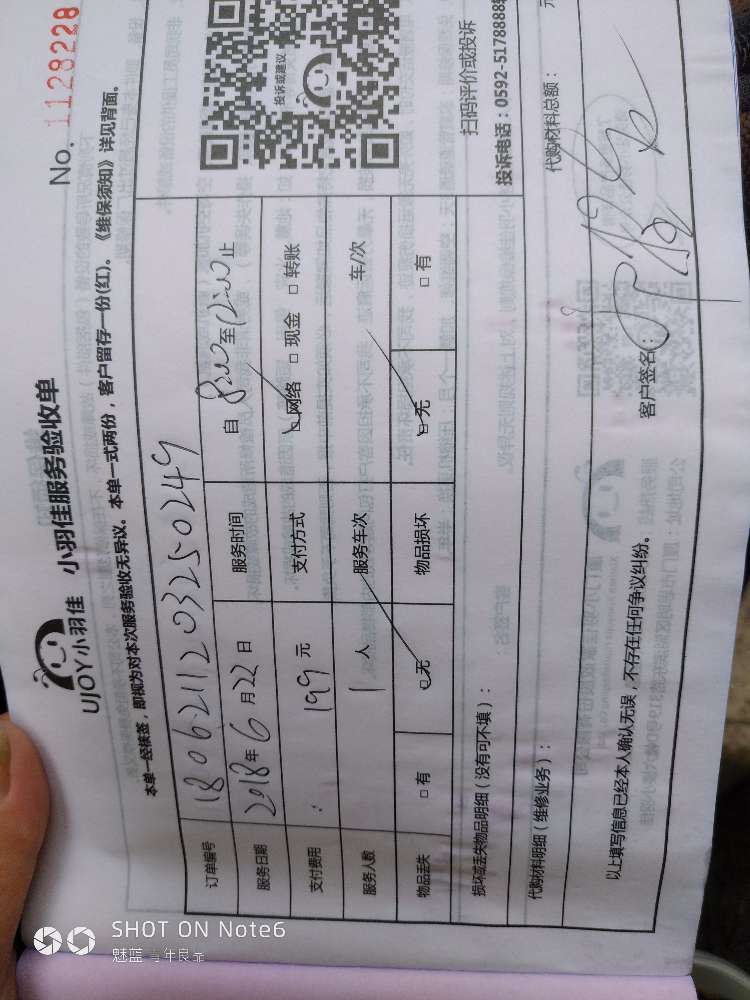 No. 1128228
UJOY小羽佳 小羽佳服务验收单
本单一经核签，即视为对本次服务验收无异议。本单一式两份，客户留存一份(红)。《维保须知》详见背面。
订单编号 180621120325024 9
服务日期 2018年6月22日 服务时间 自 8:00至12:00止
支付费用 199元 支付方式 □网络 □现金 □转账
服务人数 1人 服务车次 车/次
物品丢失 □有 □无 物品损坏 □无 □有
损坏或丢失物品明细（没有可不填）：
代购材料明细（维修业务）： 代购材料总额： 元
以上填写信息已经本人确认无误，不存在任何争议纠纷。 客户签名：
投诉或建议
扫码评价或投诉
投诉电话：0592-5178888
SHOT ON Note6
魅蓝 青年良品